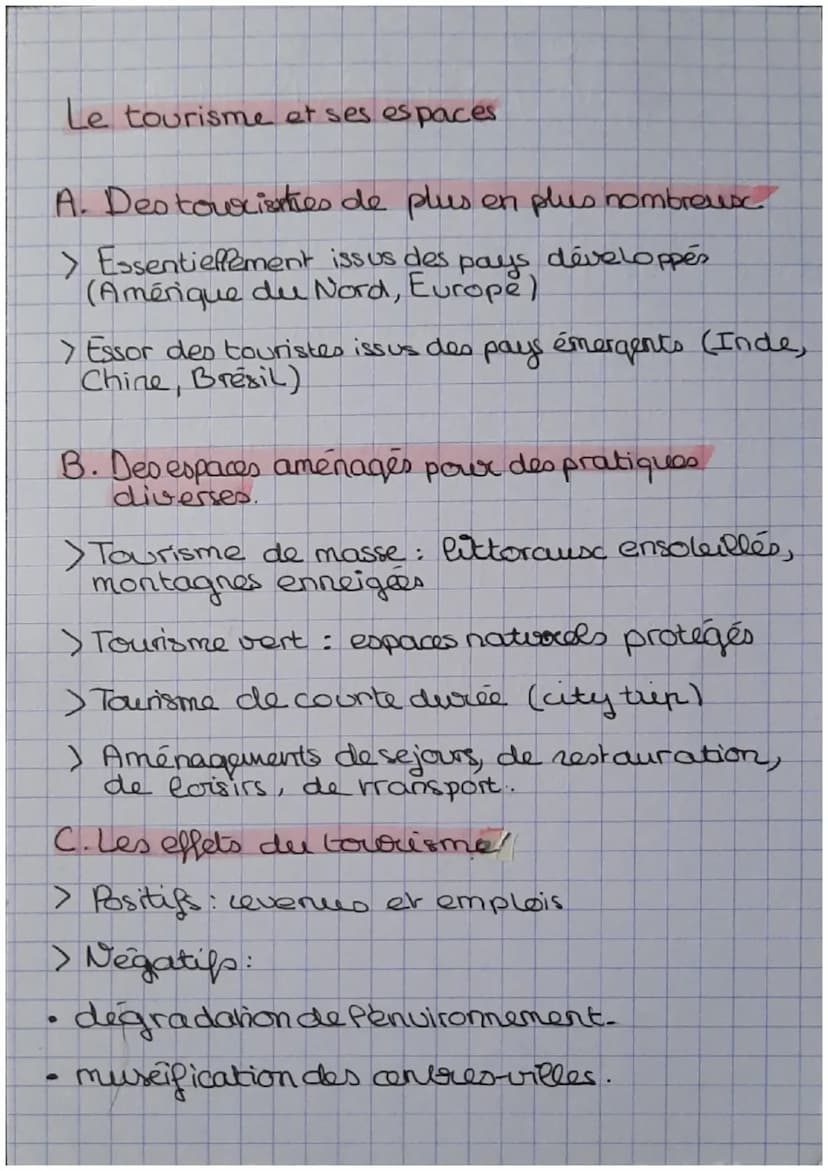 Le tourisme et ses espaces
A. Des touristes de plus en plus nombreux
> Essentiellement issus des pays développés
(Amérique du Nord, Europe)
> Essor des touristes issus des pays émergents (Inde,
Chine, Brésil)
B. Des espaces aménagés pour des pratiques
diverses.
> Tourisme de masse : littoraux ensoleillés,
montagnes enneigées
> Tourisme vert : espaces naturels protégés
> Tourisme de courte durée (city trip)
> Aménagements de sejours, de restauration,
de loisirs, de transport..
C. Les effets du tourisme
> Positifs : revenus et emplois
> Négatifs :
• dégradation de l'environnement-
• muséification des centres-villes.